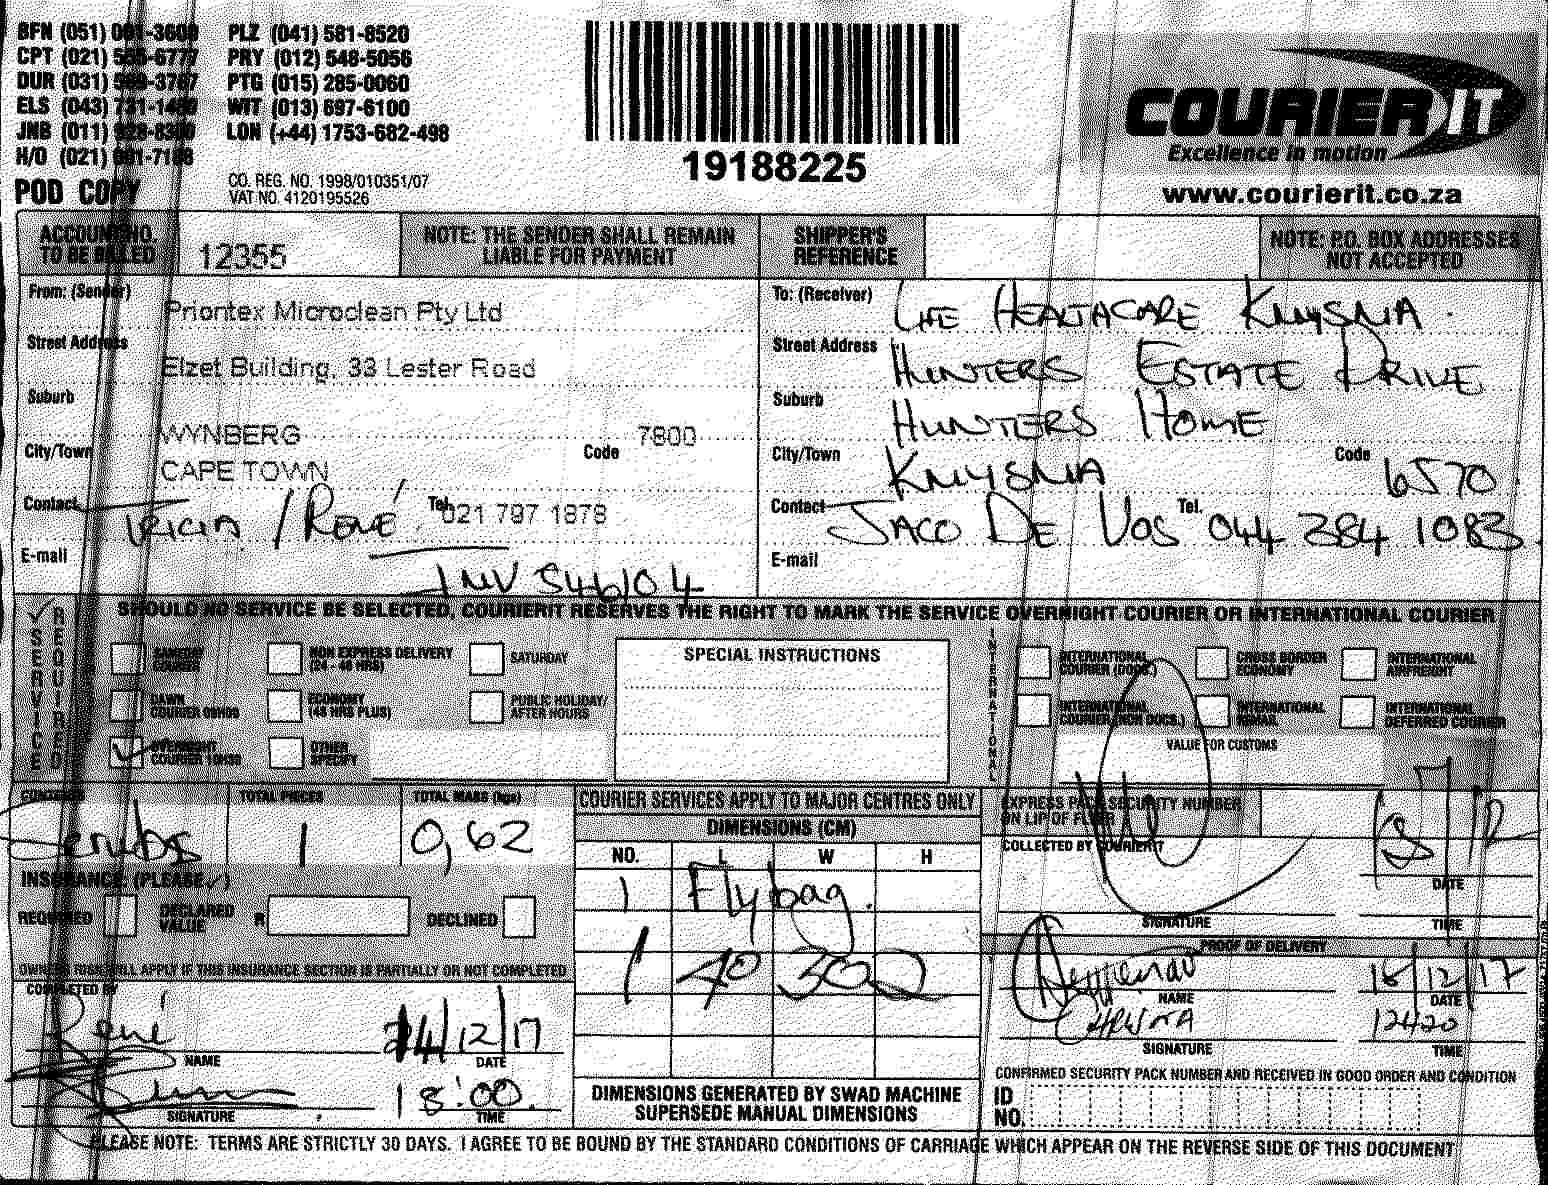 BFN (051) PLZ (041) 581-8520
CPT (021) PRY (012) 548-5056
DUR (031) PTG (015) 285-0060
ELS (043) WIT (013) 697-6100
JNB (011) LON (+44) 1753-682-498
H/O (021)
POD COPY
CO. REG. NO. 1998/010351/07
VAT NO. 4120195526
19188225
COURIER IT
Excellence in motion
www.courierit.co.za
ACCOUNT NO. TO BE BILLED 12355
NOTE: THE SENDER SHALL REMAIN LIABLE FOR PAYMENT
SHIPPER'S REFERENCE
NOTE: P.O. BOX ADDRESSES NOT ACCEPTED
From: (Sender) Priontex Microclean Pty Ltd
Street Address Elzet Building, 33 Lester Road
Suburb WYNBERG
City/Town CAPE TOWN Code 7800
Contact Tricia / René Tel. 021 797 1878
E-mail
INV 546104
To: (Receiver) Life Healthcare Knysna
Street Address Hunters Estate Drive
Suburb Hunters Home
City/Town Knysna Code 6570
Contact Jaco De Vos Tel. 044 384 1083
E-mail
SERVICE REQUIRED
SHOULD NO SERVICE BE SELECTED, COURIERIT RESERVES THE RIGHT TO MARK THE SERVICE OVERNIGHT COURIER OR INTERNATIONAL COURIER
SAMEDAY COURIER
NON EXPRESS DELIVERY (24 - 48 HRS)
SATURDAY
DAWN COURIER 09H00
ECONOMY (48 HRS PLUS)
PUBLIC HOLIDAY/ AFTER HOURS
OVERNIGHT COURIER 10H30
OTHER SPECIFY
SPECIAL INSTRUCTIONS
INTERNATIONAL
INTERNATIONAL COURIER (DOCS.)
CROSS BORDER ECONOMY
INTERNATIONAL AIRFREIGHT
INTERNATIONAL COURIER (NON DOCS.)
INTERNATIONAL
INTERNATIONAL DEFERRED COURIER
VALUE FOR CUSTOMS
CONTENTS Scrubs
TOTAL PIECES 1
TOTAL MASS (kgs) 0,62
INSURANCE (PLEASE ✓)
REQUIRED
DECLARED VALUE R
DECLINED
OWNERS RISK WILL APPLY IF THIS INSURANCE SECTION IS PARTIALLY OR NOT COMPLETED
COMPLETED BY
René
NAME
14/12/17
DATE
SIGNATURE
18:00
TIME
COURIER SERVICES APPLY TO MAJOR CENTRES ONLY
DIMENSIONS (CM)
NO. L W H
1 Flybag.
1 40 30 2
DIMENSIONS GENERATED BY SWAD MACHINE
SUPERSEDE MANUAL DIMENSIONS
EXPRESS PACK SECURITY NUMBER ON LIP OF FLYER
COLLECTED BY COURIERIT
DATE
SIGNATURE
TIME
PROOF OF DELIVERY
NAME
DATE
12h20
SIGNATURE
TIME
CONFIRMED SECURITY PACK NUMBER AND RECEIVED IN GOOD ORDER AND CONDITION
ID NO.
PLEASE NOTE: TERMS ARE STRICTLY 30 DAYS. I AGREE TO BE BOUND BY THE STANDARD CONDITIONS OF CARRIAGE WHICH APPEAR ON THE REVERSE SIDE OF THIS DOCUMENT